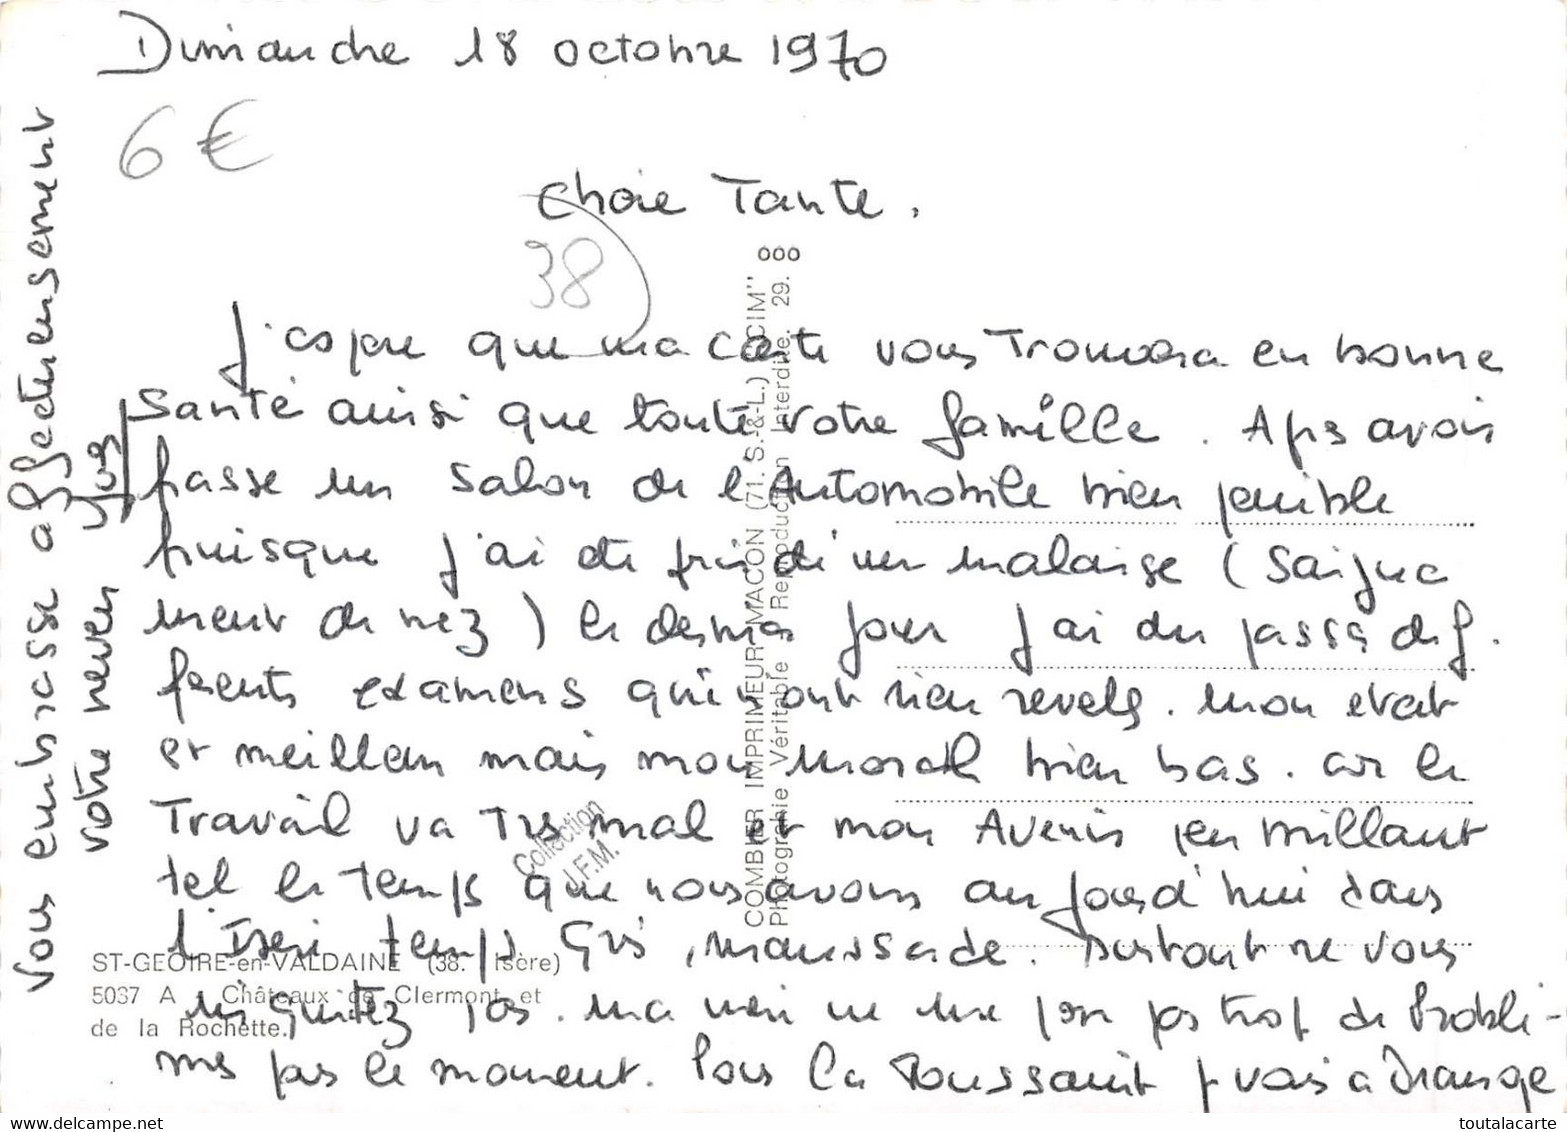 Dimanche 18 octobre 1970
6 €
Chère Tante.
38
J'espère que ma carte vous trouvera en bonne
santé ainsi que toute votre famille. Après avoir
passé un salon de l'Automobile bien pénible
puisque j'ai été pris d'un malaise (saigne
ment de nez) le dernier jour j'ai du passé dif.
férents examens qui n'ont rien revelé. Mon etat
et meilleur mais mon moral bien bas. car le
Travail va très mal et mon Avenir peu brillant
tel le temps que nous avons aujourd'hui dans
l'Isère temps Gris, maussade. Surtout ne vous
inquiétez pas. ma vie ne me pose pas trop de Problè-
mes pas le moment. Pour la Toussaint j vais a Orange
Vous embrasse affectueusement
votre neveu
COMBIER IMPRIMEUR MACON (71. S.-&-L.) "CIM"
Photographie Véritable Reproduction Interdite. 29. ooo
Collection
I.F.M.
ST-GEOIRE-en-VALDAINE (38. Isère)
5037 A Châteaux de Clermont et
de la Rochette.
www.delcampe.net
toutalacarte